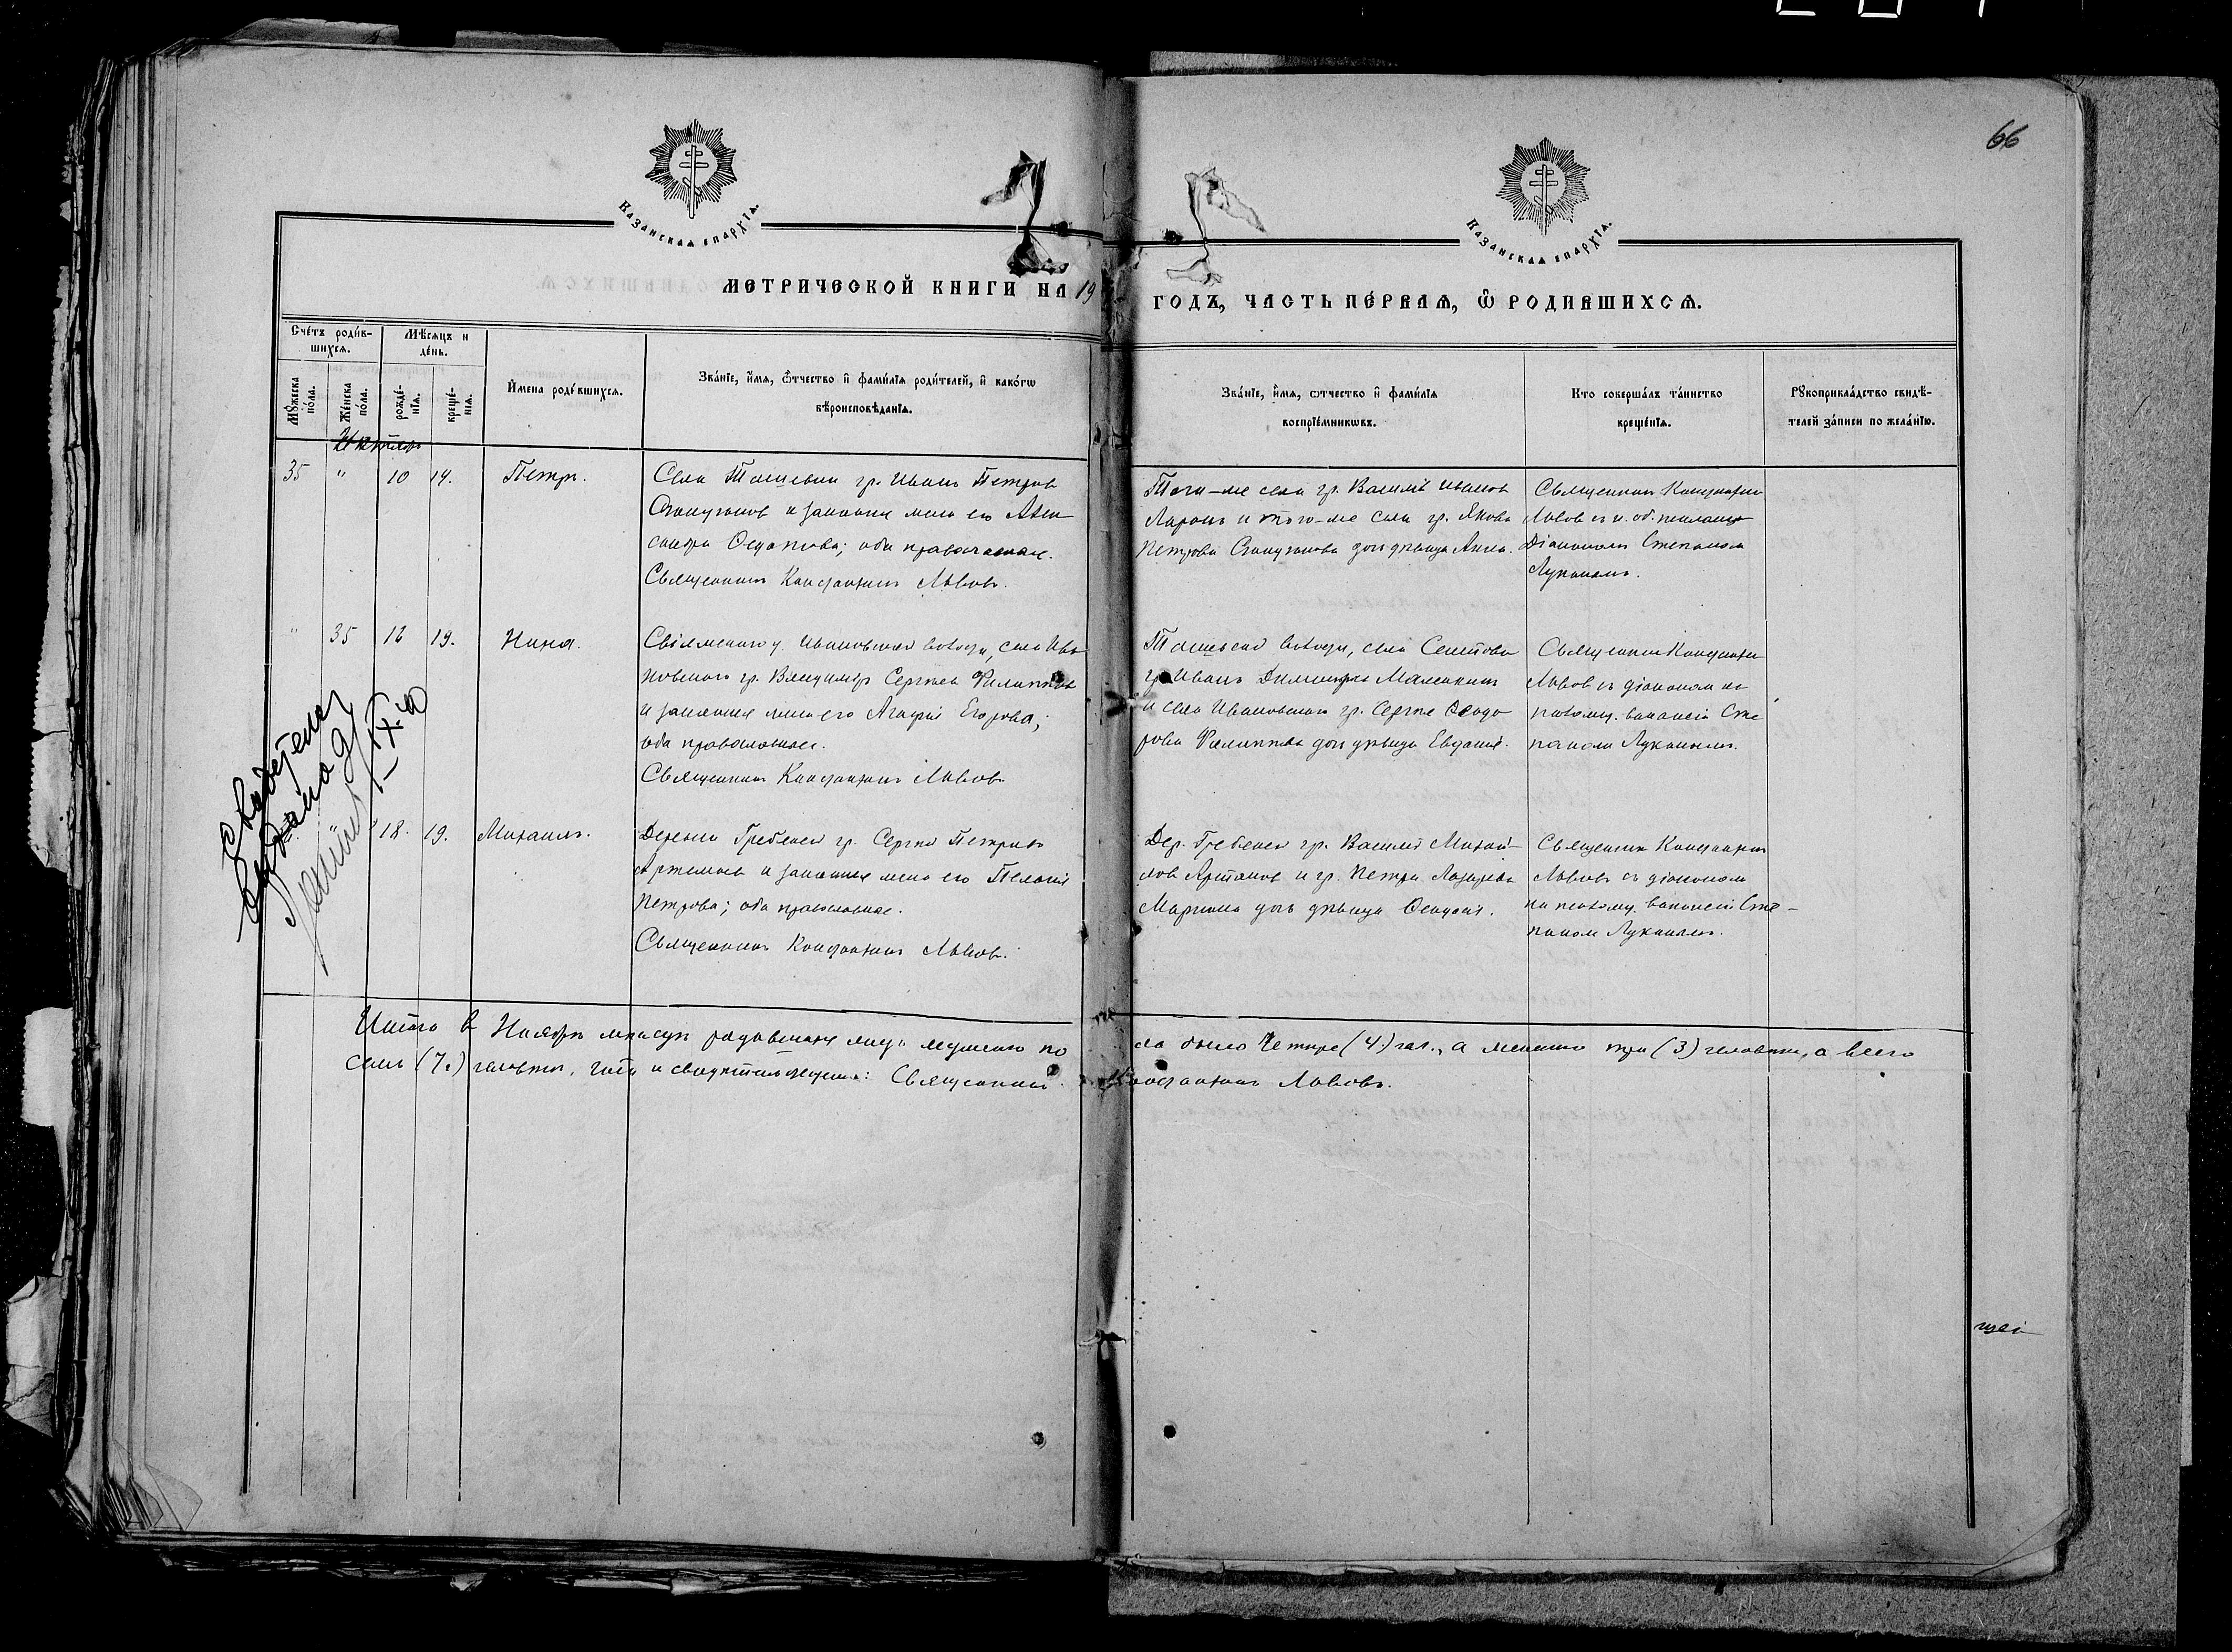 66
КАЗАНСКАѦ ЕПАРХІѦ.
КАЗАНСКАѦ ЕПАРХІѦ.
МЕТРИЧЕСКОЙ КНИГИ НА 19
ГОДЪ, ЧАСТЬ ПЕ́РВАѦ, Ѽ РОДИВШИХСѦ.
Сче́тъ роди́в-
шихсѧ.
Мѣ́сѧцъ и
де́нь.
Мꙋ́жеска
по́ла.
Же́нска
по́ла.
рожде́-
нїѧ.
креще́-
нїѧ.
И҆мена роди́вшихсѧ.
Зва́нїе, и҆́мѧ, ѻ҆́тчество и҆ фами́лїѧ роди́телей, и҆ како́гѡ
вѣроисповѣ́данїѧ.
Зва́нїе, и҆́мѧ, ѻ҆́тчество и҆ фами́лїѧ
воспрїе́мникѡвъ.
Кто соверша́лъ та́инство
креще́нїѧ.
Рꙋкоприкла́дство свидѣ́-
телей за́писи по жела́нїю.
35 " 10 14. Петръ.
Села Ташевки гр. Иванъ Петров
и законная жена его
; оба православные.
Священникъ Константинъ Львовъ.
Того-же села гр. Василій Иванов
и того-же села гр. Якова
Петрова дочь дѣвица Анна.
Священник Константин
Львов с и. об. псаломщ.
Діакономъ Степаномъ
Лукинымъ.
" 35 16 19. Нина.
Свіяжскаго у. Ивановской волости, села Ива-
новскаго гр. Владиміръ Сергѣев Филиппов
и законная жена его Агафія Егорова;
оба православные.
Священникъ Константинъ Львовъ
Ташевской волости, села Сеитова
гр. Иванъ Димитріев
и села Ивановскаго гр. Сергѣя Ѳеодо-
рова Филиппова дочь дѣвица Евдокія.
Священник Константин
Львов съ діаконом на
псаломщ. вакансіи Сте-
паном Лукинымъ.
18. 19. Михаилъ.
Деревни Гребеней гр. Сергѣй Петровъ
Артемьев и законная жена его Пелагія
Петрова; оба православные.
Священникъ Константинъ Львовъ.
Дер. Гребеней гр. Василій Михай-
лов и гр. Петра Лазарева
дочь дѣвица Ѳеодосія.
Священник Константин
Львовъ съ діаконом
на псаломщ. вакансіи Сте-
паном Лукинымъ.
Итого в Ноябрѣ мѣсяцѣ родившихся муж. по
ла было четыре (4) чел., а женского три (3) человѣка, а всего
семь (7) человѣкъ. Священник
Константинъ Львовъ.